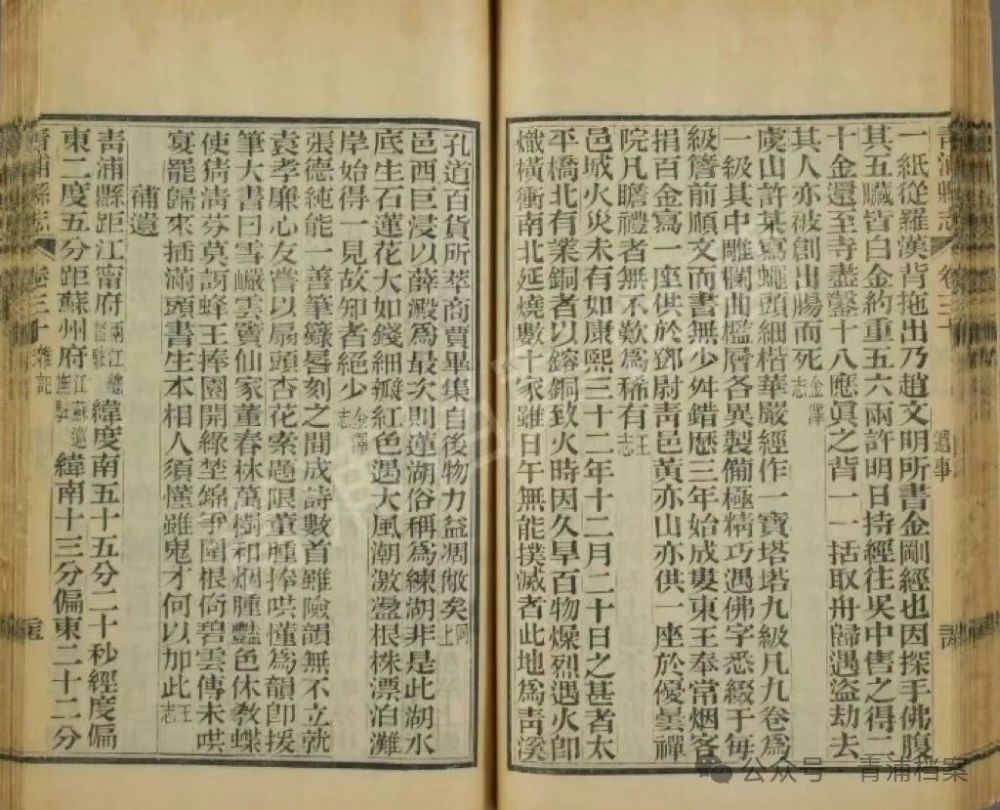 青浦縣志 卷三十 遺事
一紙從羅漢背拖出乃趙文明所書金剛經也因探手佛腹
其五臟皆白金約重五六兩許明日持經往吳中售之得二
十金還至寺盡鑿十八應眞之背一一括取舟歸遇盜劫去
其人亦被創出腸而死金澤志
虞山許某寫蠅頭細楷華嚴經作一寶塔塔九級凡九卷爲
一級其中雕欄曲檻層各異製備極精巧遇佛字悉綴于每
級簷前順文而書無少舛錯歷三年始成婁東王奉常烟客
捐百金寫一座供於鄧尉靑邑黃亦山亦供一座於優曇禪
院凡瞻禮者無不歎爲稀有王志
邑城火災未有如康熙三十二年十二月二十日之甚者太
平橋北有業銅者以鎔銅致火時因久旱百物燥烈遇火卽
熾橫衝南北延燒數十家雖日午無能撲滅者此地爲靑溪
孔道百貨所萃商賈畢集自後物力益凋敝矣同上
邑西巨浸以薛澱爲最次則蓮湖俗稱爲練湖非是此湖水
底生石蓮花大如錢細瓣紅色遇大風潮激盪根株漂泊灘
岸始得一見故知者絕少金澤志
張德純能一善筆籙晷刻之間成詩數首雖險韻無不立就
袁孝廉心友嘗以扇頭杏花索題限董腫捧哄懂爲韻卽援
筆大書曰雪巘雲寶仙家董春林萬樹和烟腫豔色休敎蝶
使猜淸芬莫訝蜂王捧園開綠埜錦爭圍根倚碧雲傳未哄
宴罷歸來插滿頭書生本相人須懂雖鬼才何以加此王志
補遺
靑浦縣距江甯府兩江總督駐緯度南五十五分二十秒經度偏
東二度五分距蘇州府江蘇巡撫緯南十三分偏東二十二分
青浦縣志 卷三十 雜記